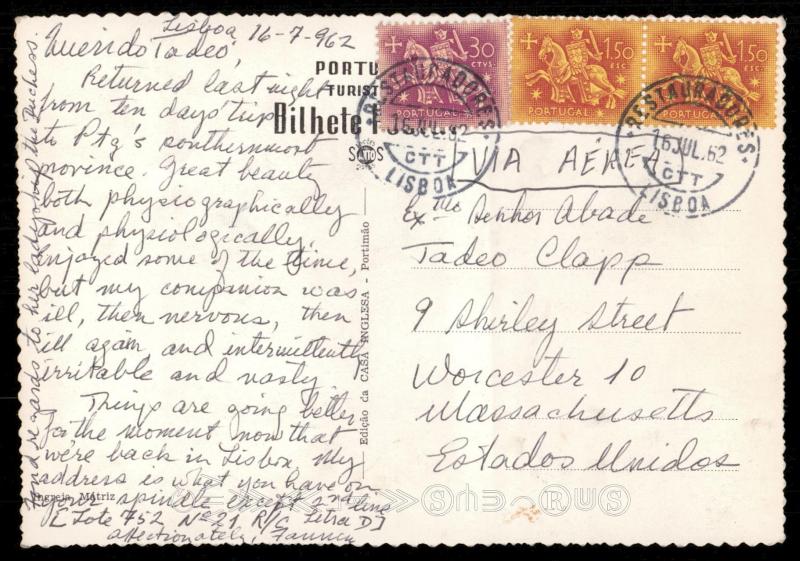 Lisboa 16-7-962
Querido Tadeo,
Returned last night
from ten days' trip
to Ptg's southernmost
province. Great beauty
both physiographically
and physiologically.
Enjoyed some of the time,
but my companion was
ill, then nervous, then
ill again and intermittently
irritable and nasty.
Things are going better
for the moment now that
we're back in Lisbon. My
address is what you have on
your spindle except 2nd line
[Lote 752 Nº 21 R/C Letra D]
affectionately,
Fond regards to her ladyship the Duchess.
PORTU
TURIST
Bilhete
Igreja Matriz
Edição da CASA INGLESA - Portimão
30
CTVS.
PORTUGAL
1$50
ESC.
PORTUGAL
1$50
ESC.
PORTUGAL
RESTAURADORES
16 JUL. 62
CTT
LISBOA
RESTAURADORES
16 JUL. 62
CTT
LISBOA
VIA AÉREA
Exmo Senhor Abade
Tadeo Clapp
9 Shirley Street
Worcester 10
Massachusetts
Estados Unidos